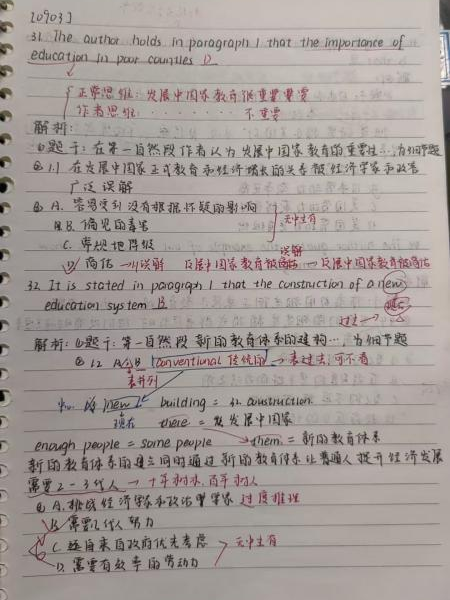 [0903]
31. The author holds in paragraph 1 that the importance of
education in poor countries D
正常思维：发展中国家教育很重要
作者思维：........ 不重要
解析：
①题干：在第一自然段作者认为发展中国家教育的重要性…，为细节题
② 1.1 在发展中国家正式教育和经济增长的关系被经济学家和政客
广泛误解
③ A. 容易受到没有根据怀疑的影响
B. 偏见的毒害
无中生有
C. 客观地降级
D. 高估→误解 发展中国家教育被误解→发展中国家教育被高估
32. It is stated in paragraph 1 that the construction of a new
education system B
过去
解析：①题干：第一自然段新的教育体系的建构…，为细节题
② 1.2 A, B conventional 传统的 → 表过去，可不看
表并列
new building = 32. construction
现在 there = 发展中国家
enough people = some people them = 新的教育体系
新的教育体系的建立同时通过新的教育体系让普通人提升经济发展
需要2-3代人 → 十年树木，百年树人
③ A. 挑战经济学家和政治学家 过度推理
B. 需要几代人努力
C. 来自政府优先考虑
无中生有
D. 需要有效率的劳动力